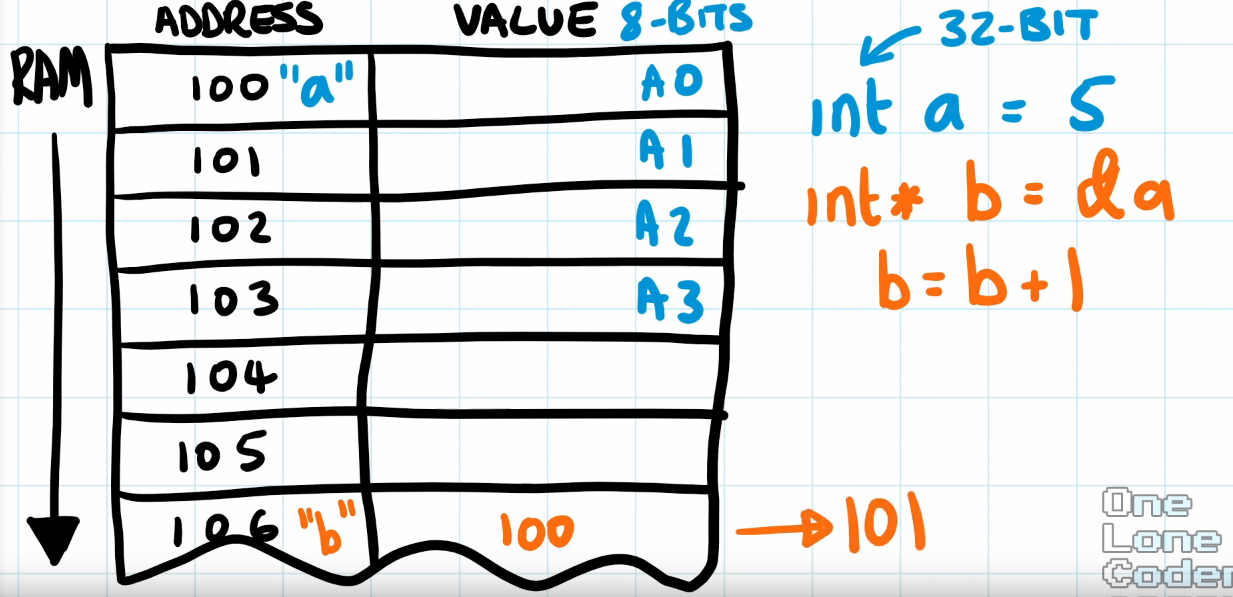 ADDRESS VALUE 8-BITS
RAM
100 "a" A0
101 A1
102 A2
103 A3
104
105
106 "b" 100 → 101
32-BIT
int a = 5
int* b = &a
b = b + 1
One
Lone
Coder